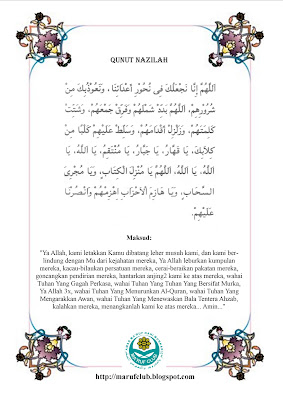 QUNUT NAZILAH
اَللّٰهُمَّ إِنَّا نَجْعَلُكَ فِى نُحُوْرِ أَعْدَائِنَا، وَنَعُوْذُبِكَ مِنْ
شُرُوْرِهِمْ، اَللّٰهُمَّ بَدِّدْ شَمْلَهُمْ وَفَرِّقْ جَمْعَهُمْ، وَشَتِّتْ
كَلِمَتَهُمْ، وَزَلْزِلْ أَقْدَامَهُمْ، وَسَلِّطْ عَلَيْهِمْ كَلْبًا مِنْ
كِلَابِكَ، يَا قَهَّارُ، يَا جَبَّارُ، يَا مُنْتَقِمُ، يَا اَللّٰهُ، يَا
اَللّٰهُ، يَا اَللّٰهُ، اَللّٰهُمَّ يَا مُنْزِلَ الْكِتَابِ، وَيَا مُجْرِيَ
السَّحَابِ، وَيَا هَازِمَ الْأَحْزَابِ اِهْزِمْهُمْ وَانْصُرْنَا
عَلَيْهِمْ.
Maksud:
"Ya Allah, kami letakkan Kamu dibatang leher musuh kami, dan kami ber-
lindung dengan Mu dari kejahatan mereka, Ya Allah leburkan kumpulan
mereka, kacau-bilaukan persatuan mereka, cerai-beraikan pakatan mereka,
goncangkan pendirian mereka, hantarkan anjing2 kami ke atas mereka, wahai
Tuhan Yang Gagah Perkasa, wahai Tuhan Yang Tuhan Yang Bersifat Murka,
Ya Allah 3x, wahai Tuhan Yang Menurunkan Al-Quran, wahai Tuhan Yang
Mengarakkan Awan, wahai Tuhan Yang Menewaskan Bala Tentera Ahzab,
kalahkan mereka, menangkanlah kami ke atas mereka... Amin..."
http://marufclub.blogspot.com